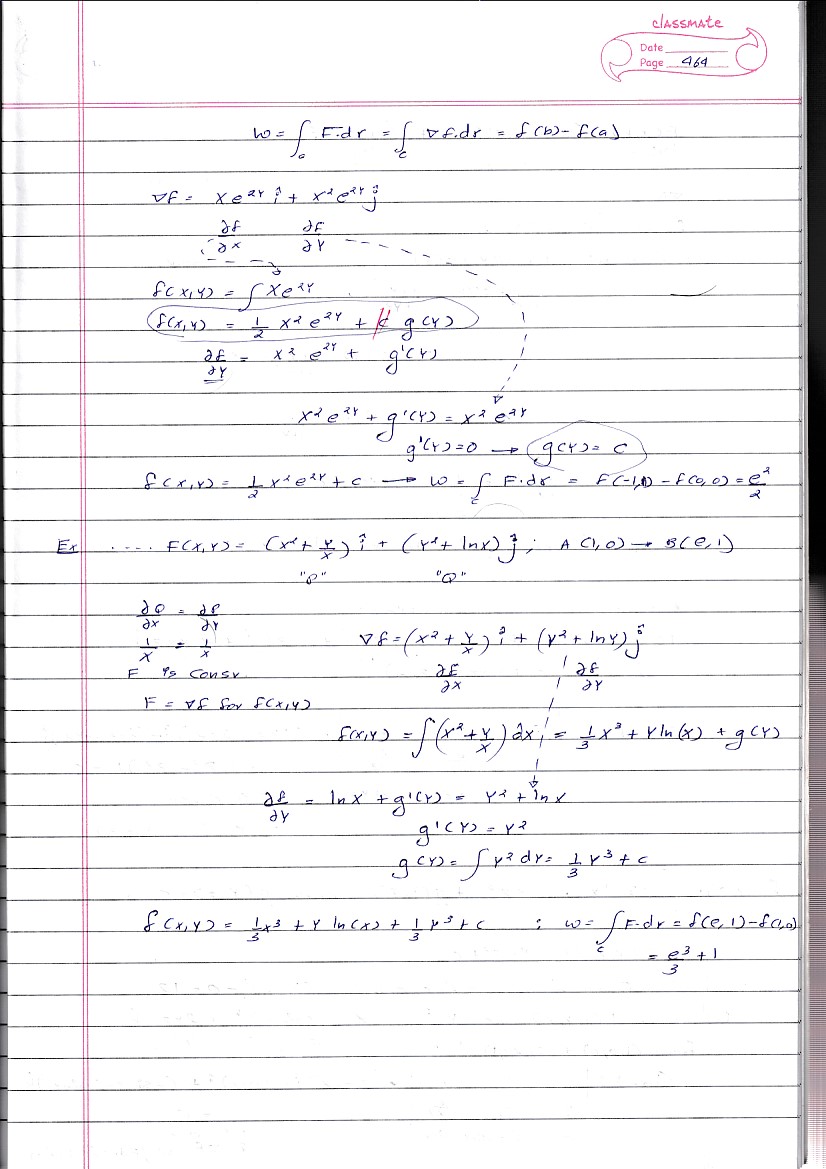 classmate
Date
Page 464
W = ∫_c F.dr = ∫_c ∇f.dr = f(b) - f(a)
∇f = xe^{2y} î + x²e^{2y} ĵ
∂f/∂x ∂f/∂y
f(x,y) = ∫ xe^{2y}
f(x,y) = 1/2 x² e^{2y} + g(y)
∂f/∂y = x² e^{2y} + g'(y)
x² e^{2y} + g'(y) = x² e^{2y}
g'(y) = 0 → g(y) = c
f(x,y) = 1/2 x² e^{2y} + c → W = ∫_c F.dr = f(-1,1) - f(0,0) = e²/2
Ex .... F(x,y) = (x² + y/x) î + (y² + lnx) ĵ ; A(1,0) → B(e,1)
"P" "Q"
∂Q/∂x = ∂P/∂y
1/x = 1/x ∇f = (x² + y/x) î + (y² + lny) ĵ
F is consv ∂f/∂x ∂f/∂y
F = ∇f for f(x,y)
f(x,y) = ∫ (x² + y/x) ∂x = 1/3 x³ + y ln(x) + g(y)
∂f/∂y = lnx + g'(y) = y² + lnx
g'(y) = y²
g(y) = ∫ y² dy = 1/3 y³ + c
f(x,y) = 1/3 x³ + y ln(x) + 1/3 y³ + c ; W = ∫_c F.dr = f(e,1) - f(1,0)
= e³/3 + 1